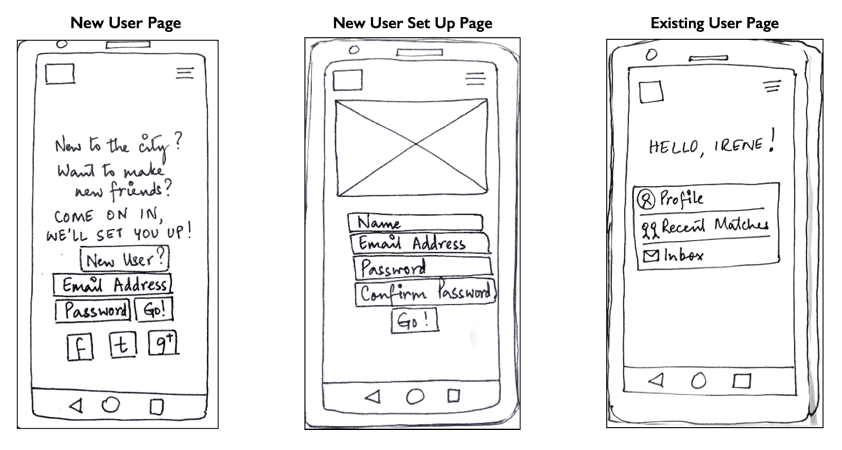 New User Page
New to the city?
Want to make
new friends?
COME ON IN,
WE'LL SET YOU UP!
New User?
Email Address
Password Go!
f t g+
New User Set Up Page
Name
Email Address
Password
Confirm Password
Go!
Existing User Page
HELLO, IRENE!
Profile
Recent Matches
Inbox